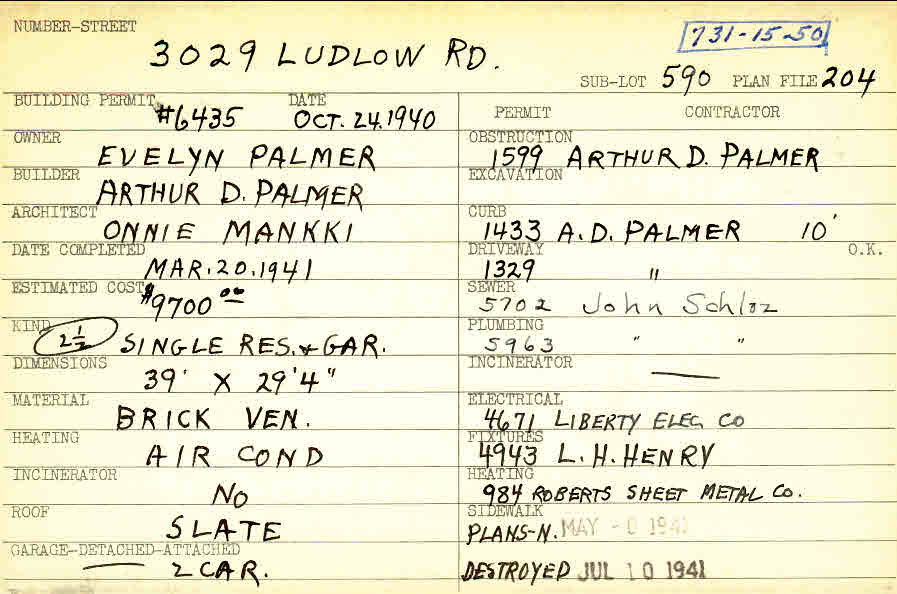 NUMBER-STREET
3029 LUDLOW RD.
731-15-50
SUB-LOT 590 PLAN FILE 204
BUILDING PERMIT #6435 DATE OCT. 24. 1940
OWNER EVELYN PALMER
BUILDER ARTHUR D. PALMER
ARCHITECT ONNIE MANKKI
DATE COMPLETED MAR. 20. 1941
ESTIMATED COST $9700 00
KIND 2 1/2 SINGLE RES. & GAR.
DIMENSIONS 39' X 29'4"
MATERIAL BRICK VEN.
HEATING AIR COND
INCINERATOR NO
ROOF SLATE
GARAGE-DETACHED-ATTACHED
2 CAR.
PERMIT CONTRACTOR
OBSTRUCTION 1599 ARTHUR D. PALMER
EXCAVATION
CURB 1433 A.D. PALMER 10'
DRIVEWAY 1329 " O.K.
SEWER 5702 John Schloz
PLUMBING 5963 " "
INCINERATOR —
ELECTRICAL 4671 LIBERTY ELEC CO
FIXTURES 4943 L. H. HENRY
HEATING 984 ROBERTS SHEET METAL CO.
SIDEWALK
PLANS-N. MAY 1941
DESTROYED JUL 10 1941